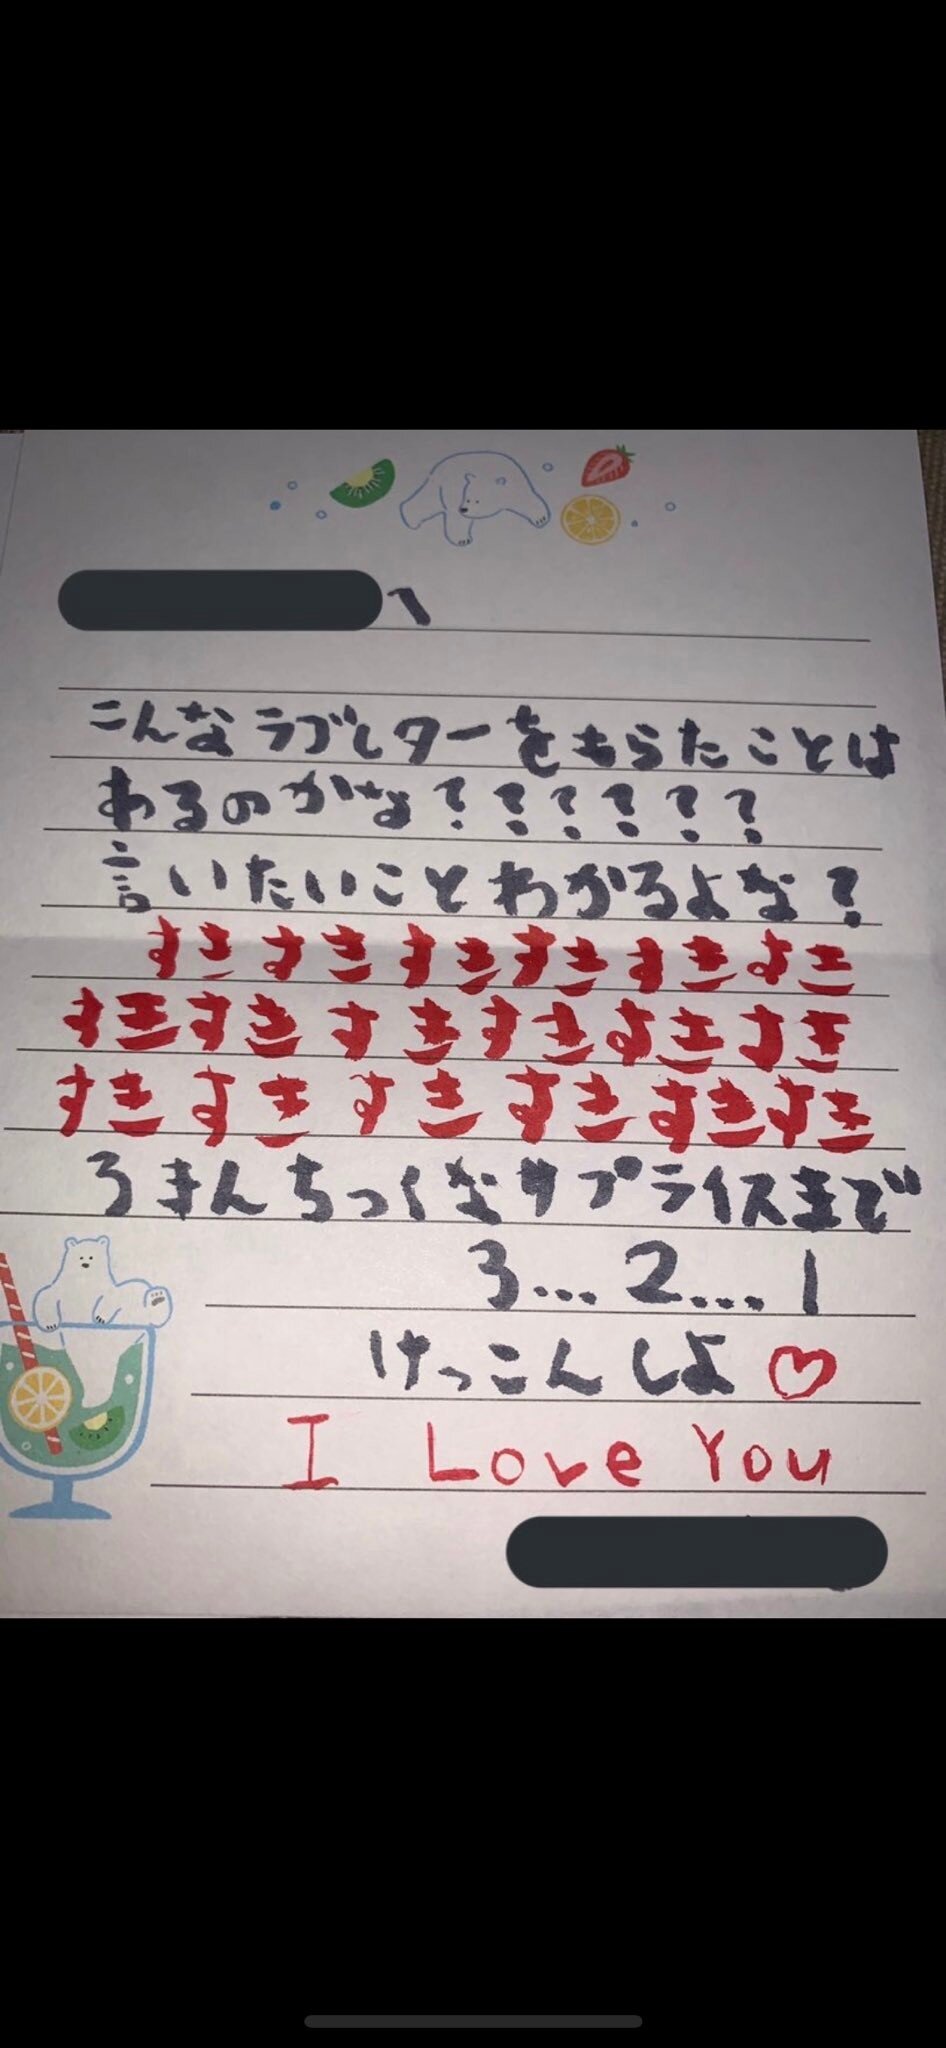 へ
こんなラブレターをもらたことは
あるのかな??????
言いたいことわかるよな?
すきすきすきすきすきすき
すきすきすきすきすきすき
すきすきすきすきすきすき
ろまんちっくなサプライスまで
3...2...1
けっこんしよ♡
I Love You